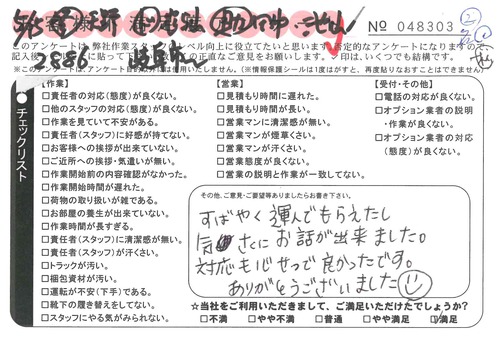 No 048303
このアンケートは、弊社作業スタ
レベル向上に役立てたいと思います。否定的なアンケートになりますので、
※このアンケートは、
(※情報保護シールは1度はがすと、再度貼りなおすことはできません)
チェックリスト
【作業】
□責任者の対応(態度)が良くない。
□他のスタッフの対応(態度)が良くない。
□作業を見ていて不安がある。
□責任者(スタッフ)に好感が持てない。
□お客様への挨拶が出来ていない。
□ご近所への挨拶・気遣いが無い。
□作業開始前の内容確認がなかった。
□作業開始時間が遅れた。
□荷物の取り扱いが雑である。
□お部屋の養生が出来ていない。
□作業時間が長すぎる。
□責任者(スタッフ)に清潔感が無い。
□責任者(スタッフ)が汗くさい。
□トラックが汚い。
□梱包資材が汚い。
□運転が不安(下手)である。
□靴下の履き替えをしてない。
□スタッフにやる気がみられない。
【営業】
□見積もり時間に遅れた。
□見積もり時間が長い。
□営業マンに清潔感が無い。
□営業マンが煙草くさい。
□営業マンが汗くさい。
□営業態度が良くない。
□営業の説明と作業が一致してない。
【受付・その他】
□電話の対応が良くない。
□オプション業者の説明
・作業が良くない。
□オプション業者の対応
(態度)が良くない。
その他、ご意見・ご要望等ありましたらお書き下さい。
すばやく運んでもらえたし
気さくにお話が出来ました。
対応も心せつで良かったです。
ありがとうございました
☆当社をご利用いただきまして、ご満足いただけたでしょうか?
□不満 □やや不満 □普通 □やや満足 □満足